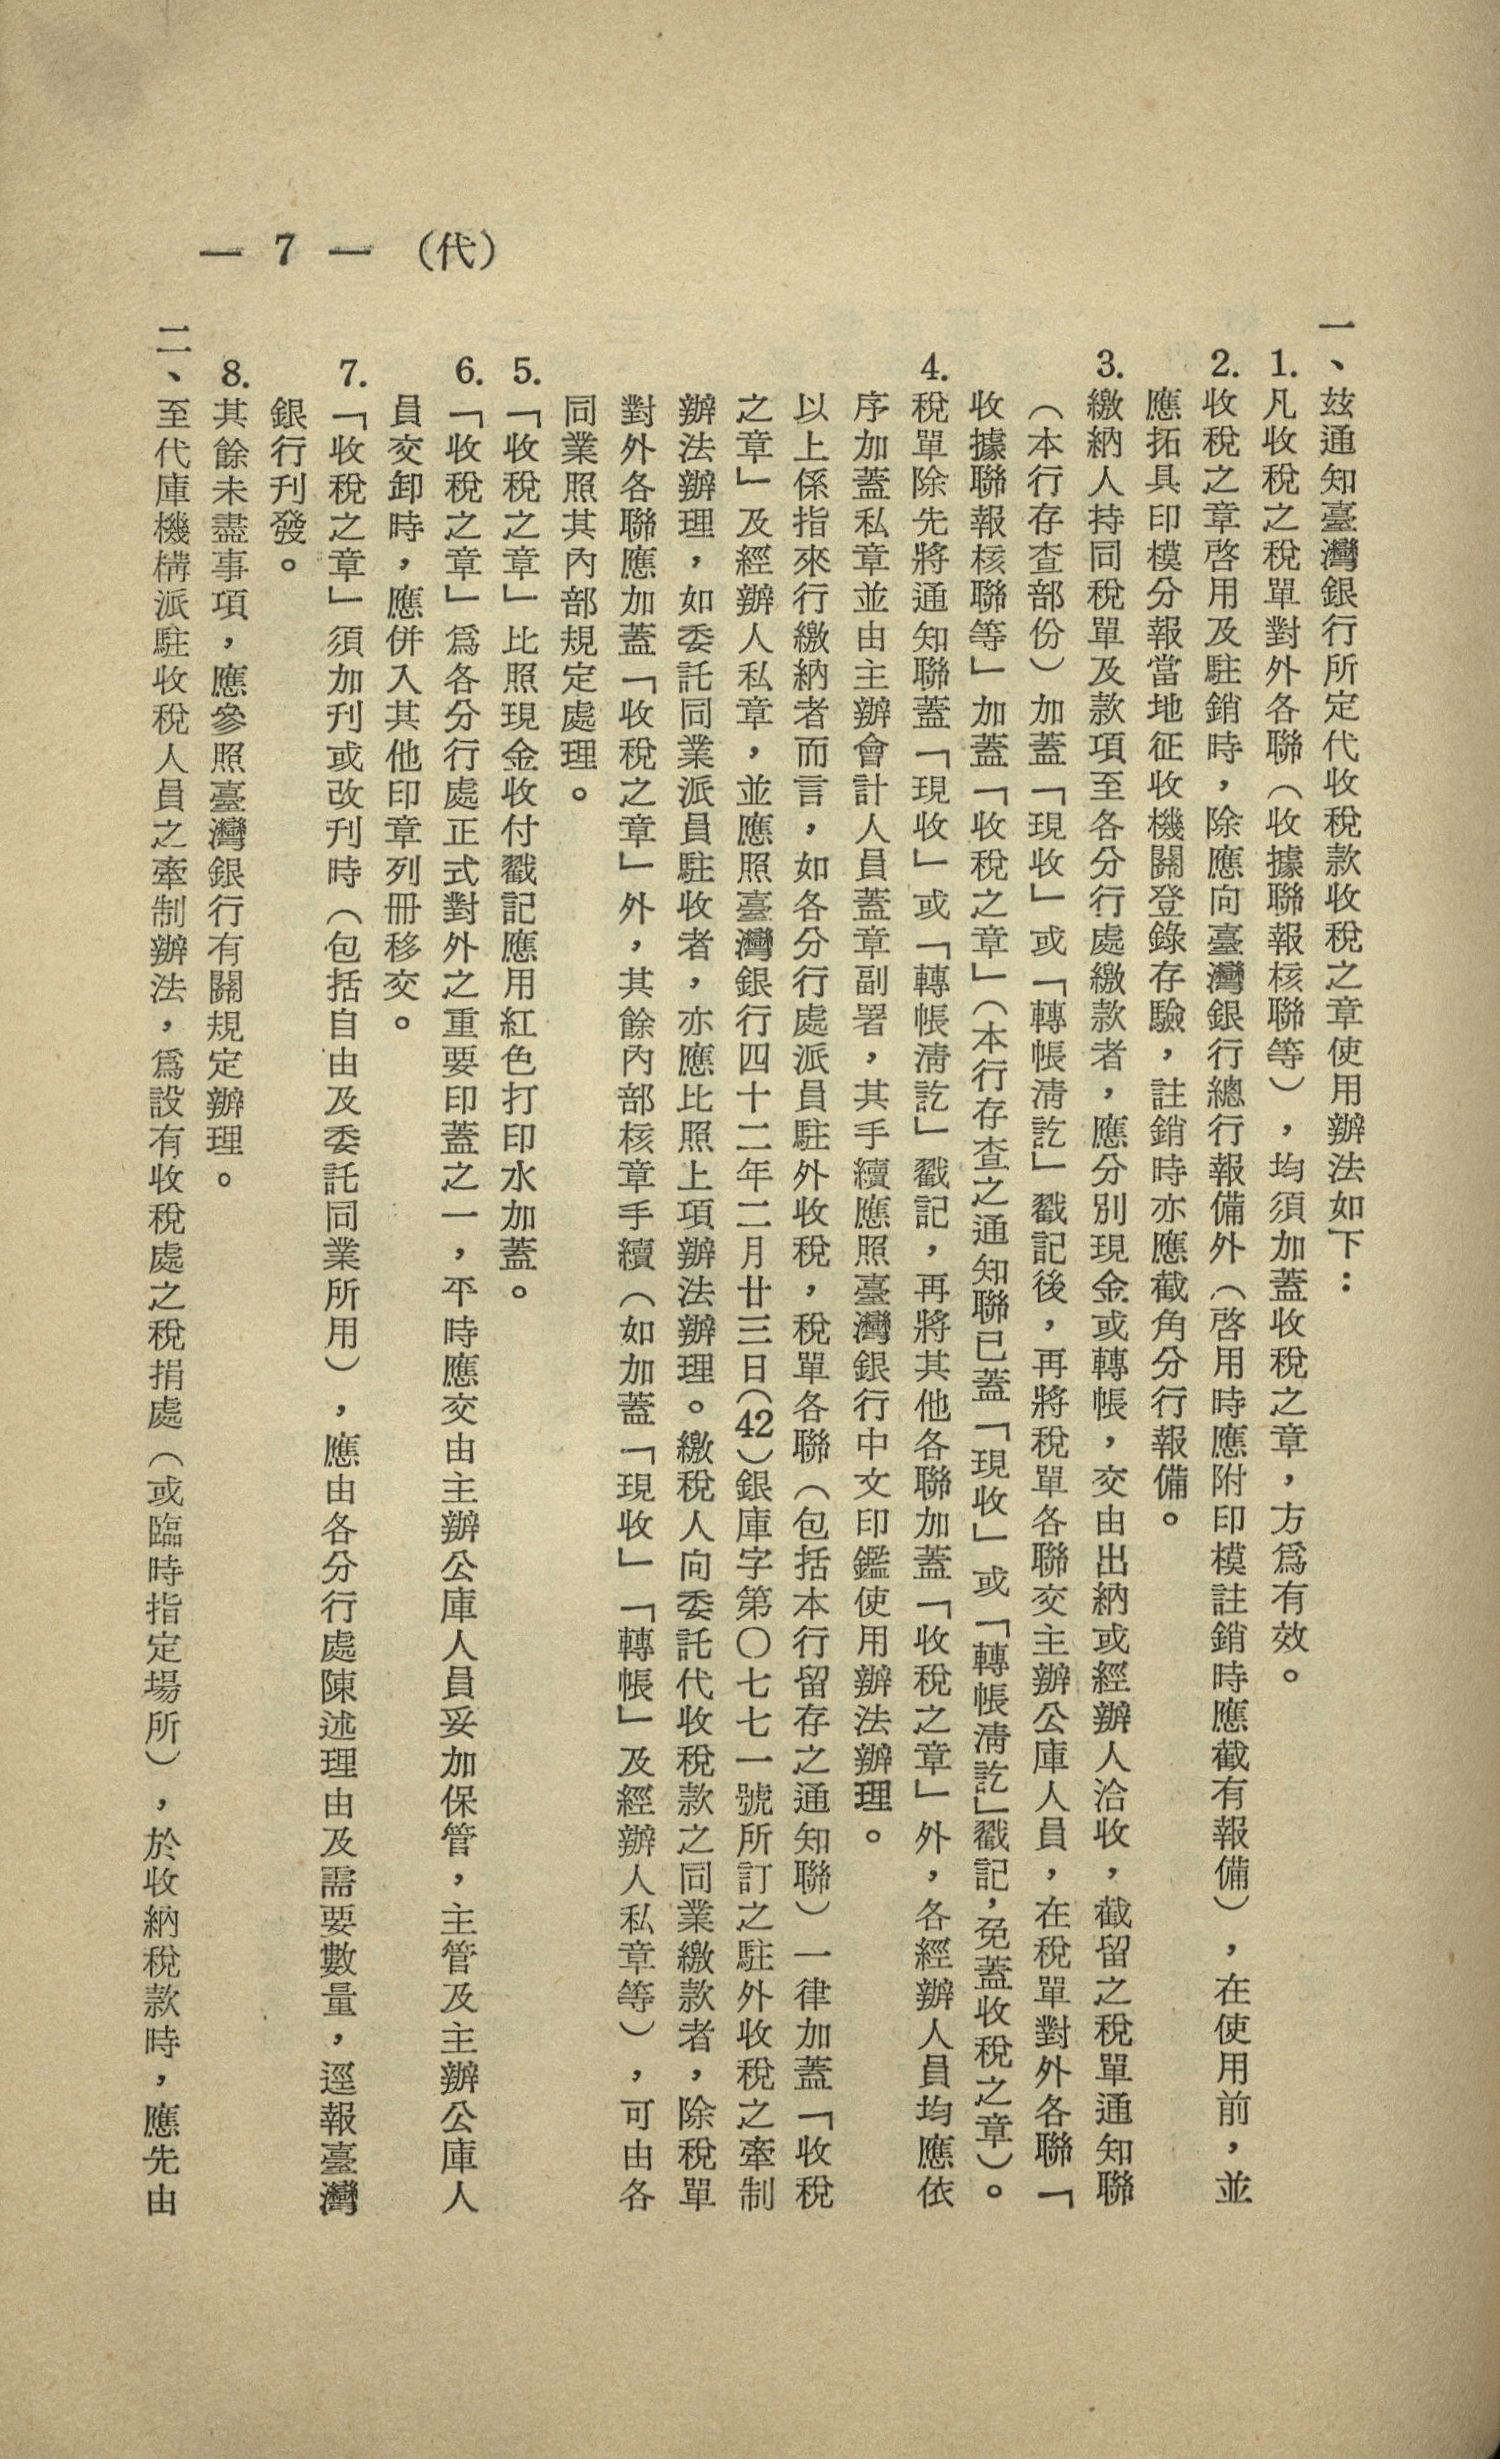 一、玆通知臺灣銀行所定代收稅款收稅之章使用辦法如下：
1.凡收稅之稅單對外各聯（收據聯報核聯等），均須加蓋收稅之章，方爲有效。
2.收稅之章啓用及駐銷時，除應向臺灣銀行總行報備外（啓用時應附印模註銷時應截有報備），在使用前，並
應拓具印模分報當地征收機關登錄存驗，註銷時亦應截角分行報備。
3.繳納人持同稅單及款項至各分行處繳款者，應分別現金或轉帳，交由出納或經辦人洽收，截留之稅單通知聯
（本行存查部份）加蓋「現收」或「轉帳淸訖」戳記後，再將稅單各聯交主辦公庫人員，在稅單對外各聯「
收據聯報核聯等」加蓋「收稅之章」（本行存查之通知聯已蓋「現收」或「轉帳淸訖」戳記，免蓋收稅之章）。
4.稅單除先將通知聯蓋「現收」或「轉帳淸訖」戳記，再將其他各聯加蓋「收稅之章」外，各經辦人員均應依
序加蓋私章並由主辦會計人員蓋章副署，其手續應照臺灣銀行中文印鑑使用辦法辦理。
以上係指來行繳納者而言，如各分行處派員駐外收稅，稅單各聯（包括本行留存之通知聯）一律加蓋「收稅
之章」及經辦人私章，並應照臺灣銀行四十二年二月廿三日（42）銀庫字第〇七七一號所訂之駐外收稅之牽制
辦法辦理，如委託同業派員駐收者，亦應比照上項辦法辦理。繳稅人向委託代收稅款之同業繳款者，除稅單
對外各聯應加蓋「收稅之章」外，其餘內部核章手續（如加蓋「現收」「轉帳」及經辦人私章等），可由各
同業照其內部規定處理。
5.「收稅之章」比照現金收付戳記應用紅色打印水加蓋。
6.「收稅之章」爲各分行處正式對外之重要印蓋之一，平時應交由主辦公庫人員妥加保管，主管及主辦公庫人
員交卸時，應併入其他印章列冊移交。
7.「收稅之章」須加刊或改刊時（包括自由及委託同業所用），應由各分行處陳述理由及需要數量，逕報臺灣
銀行刊發。
8.其餘未盡事項，應參照臺灣銀行有關規定辦理。
二、至代庫機構派駐收稅人員之牽制辦法，爲設有收稅處之稅捐處（或臨時指定場所），於收納稅款時，應先由
— 7 —（代）